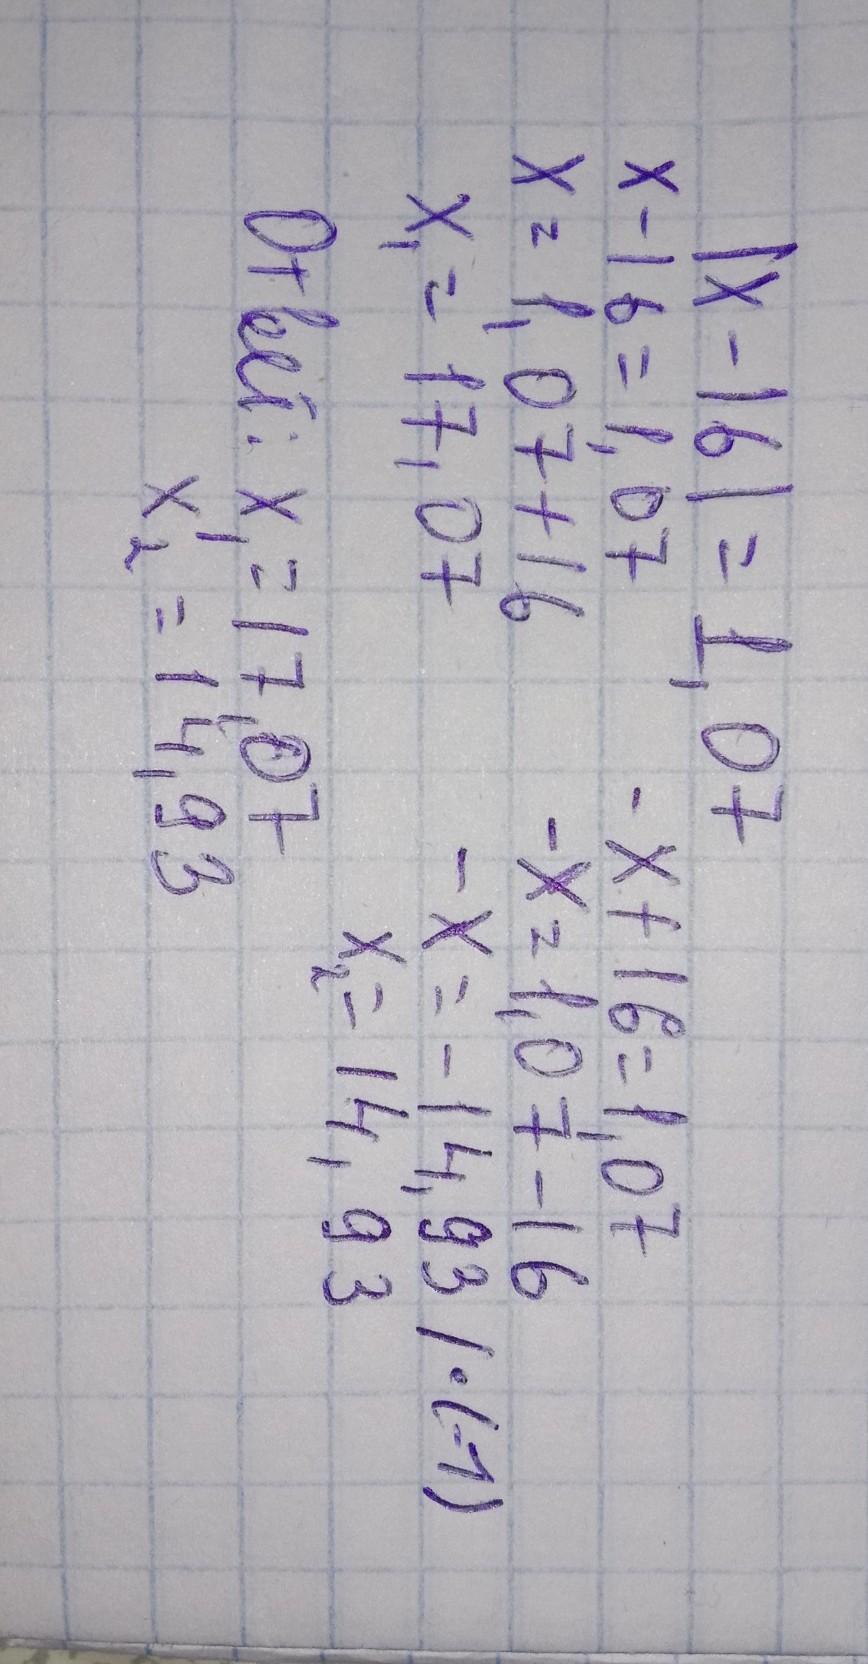 |x-16|=1,07
x-16=1,07 -x+16=1,07
x=1,07+16 -x=1,07-16
x₁=17,07 -x=-14,93 /·(-1)
x₂=14,93
Ответ: x₁=17,07
x₂=14,93